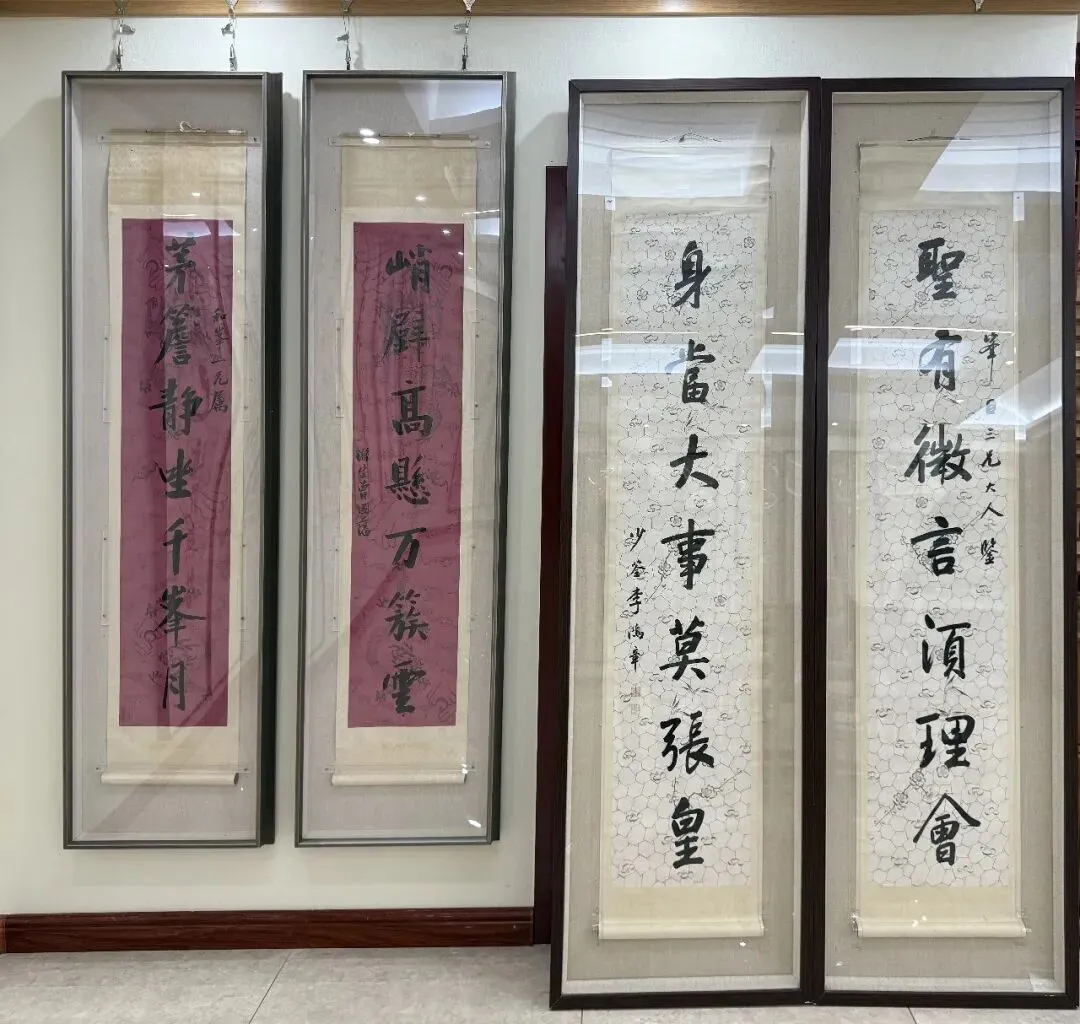 三兄大人鑒
聖有微言湏理會
身當大事莫張皇
少荃李鴻章
峭壁高懸万簇雲
滌生曾國藩
茅簷静坐千峯月